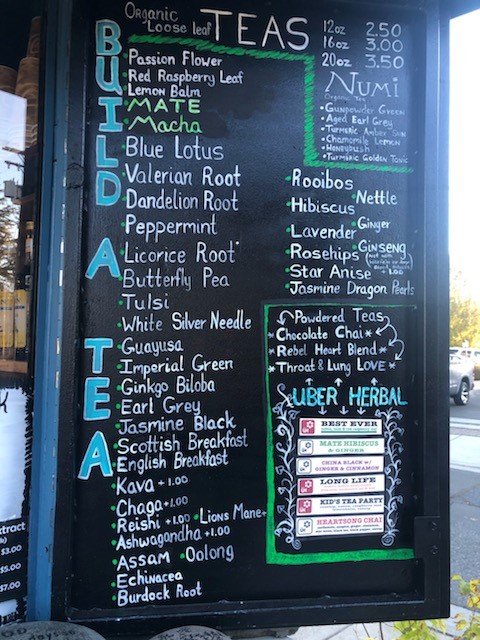 Organic
Loose leaf TEAS
12oz 2.50
16oz 3.00
20oz 3.50
BUILD A TEA
Passion Flower
Red Raspberry Leaf
Lemon Balm
MATE
Macha
Blue Lotus
Valerian Root
Dandelion Root
Peppermint
Licorice Root
Butterfly Pea
Tulsi
White Silver Needle
Guayusa
Imperial Green
Ginkgo Biloba
Earl Grey
Jasmine Black
Scottish Breakfast
English Breakfast
Kava +1.00
Chaga +1.00
Reishi +1.00 Lions Mane+
Ashwagandha +1.00
Assam Oolong
Echinacea
Burdock Root
NUMI
Organic Tea
Gunpowder Green
Aged Earl Grey
Turmeric Amber Sun
Chamomile Lemon
Honeybush
Turmeric Golden Tonic
Rooibos
Nettle
Hibiscus
Ginger
Lavender
Ginseng
Rosehips
Star Anise +1.00
Jasmine Dragon Pearls
Powdered Teas
*Chocolate Chai*
*Rebel Heart Blend*
*Throat & Lung LOVE*
UBER HERBAL
BEST EVER
MATE HIBISCUS
& GINGER
CHINA BLACK w/
GINGER & CINNAMON
LONG LIFE
KID'S TEA PARTY
HEARTSONG CHAI
$3.00